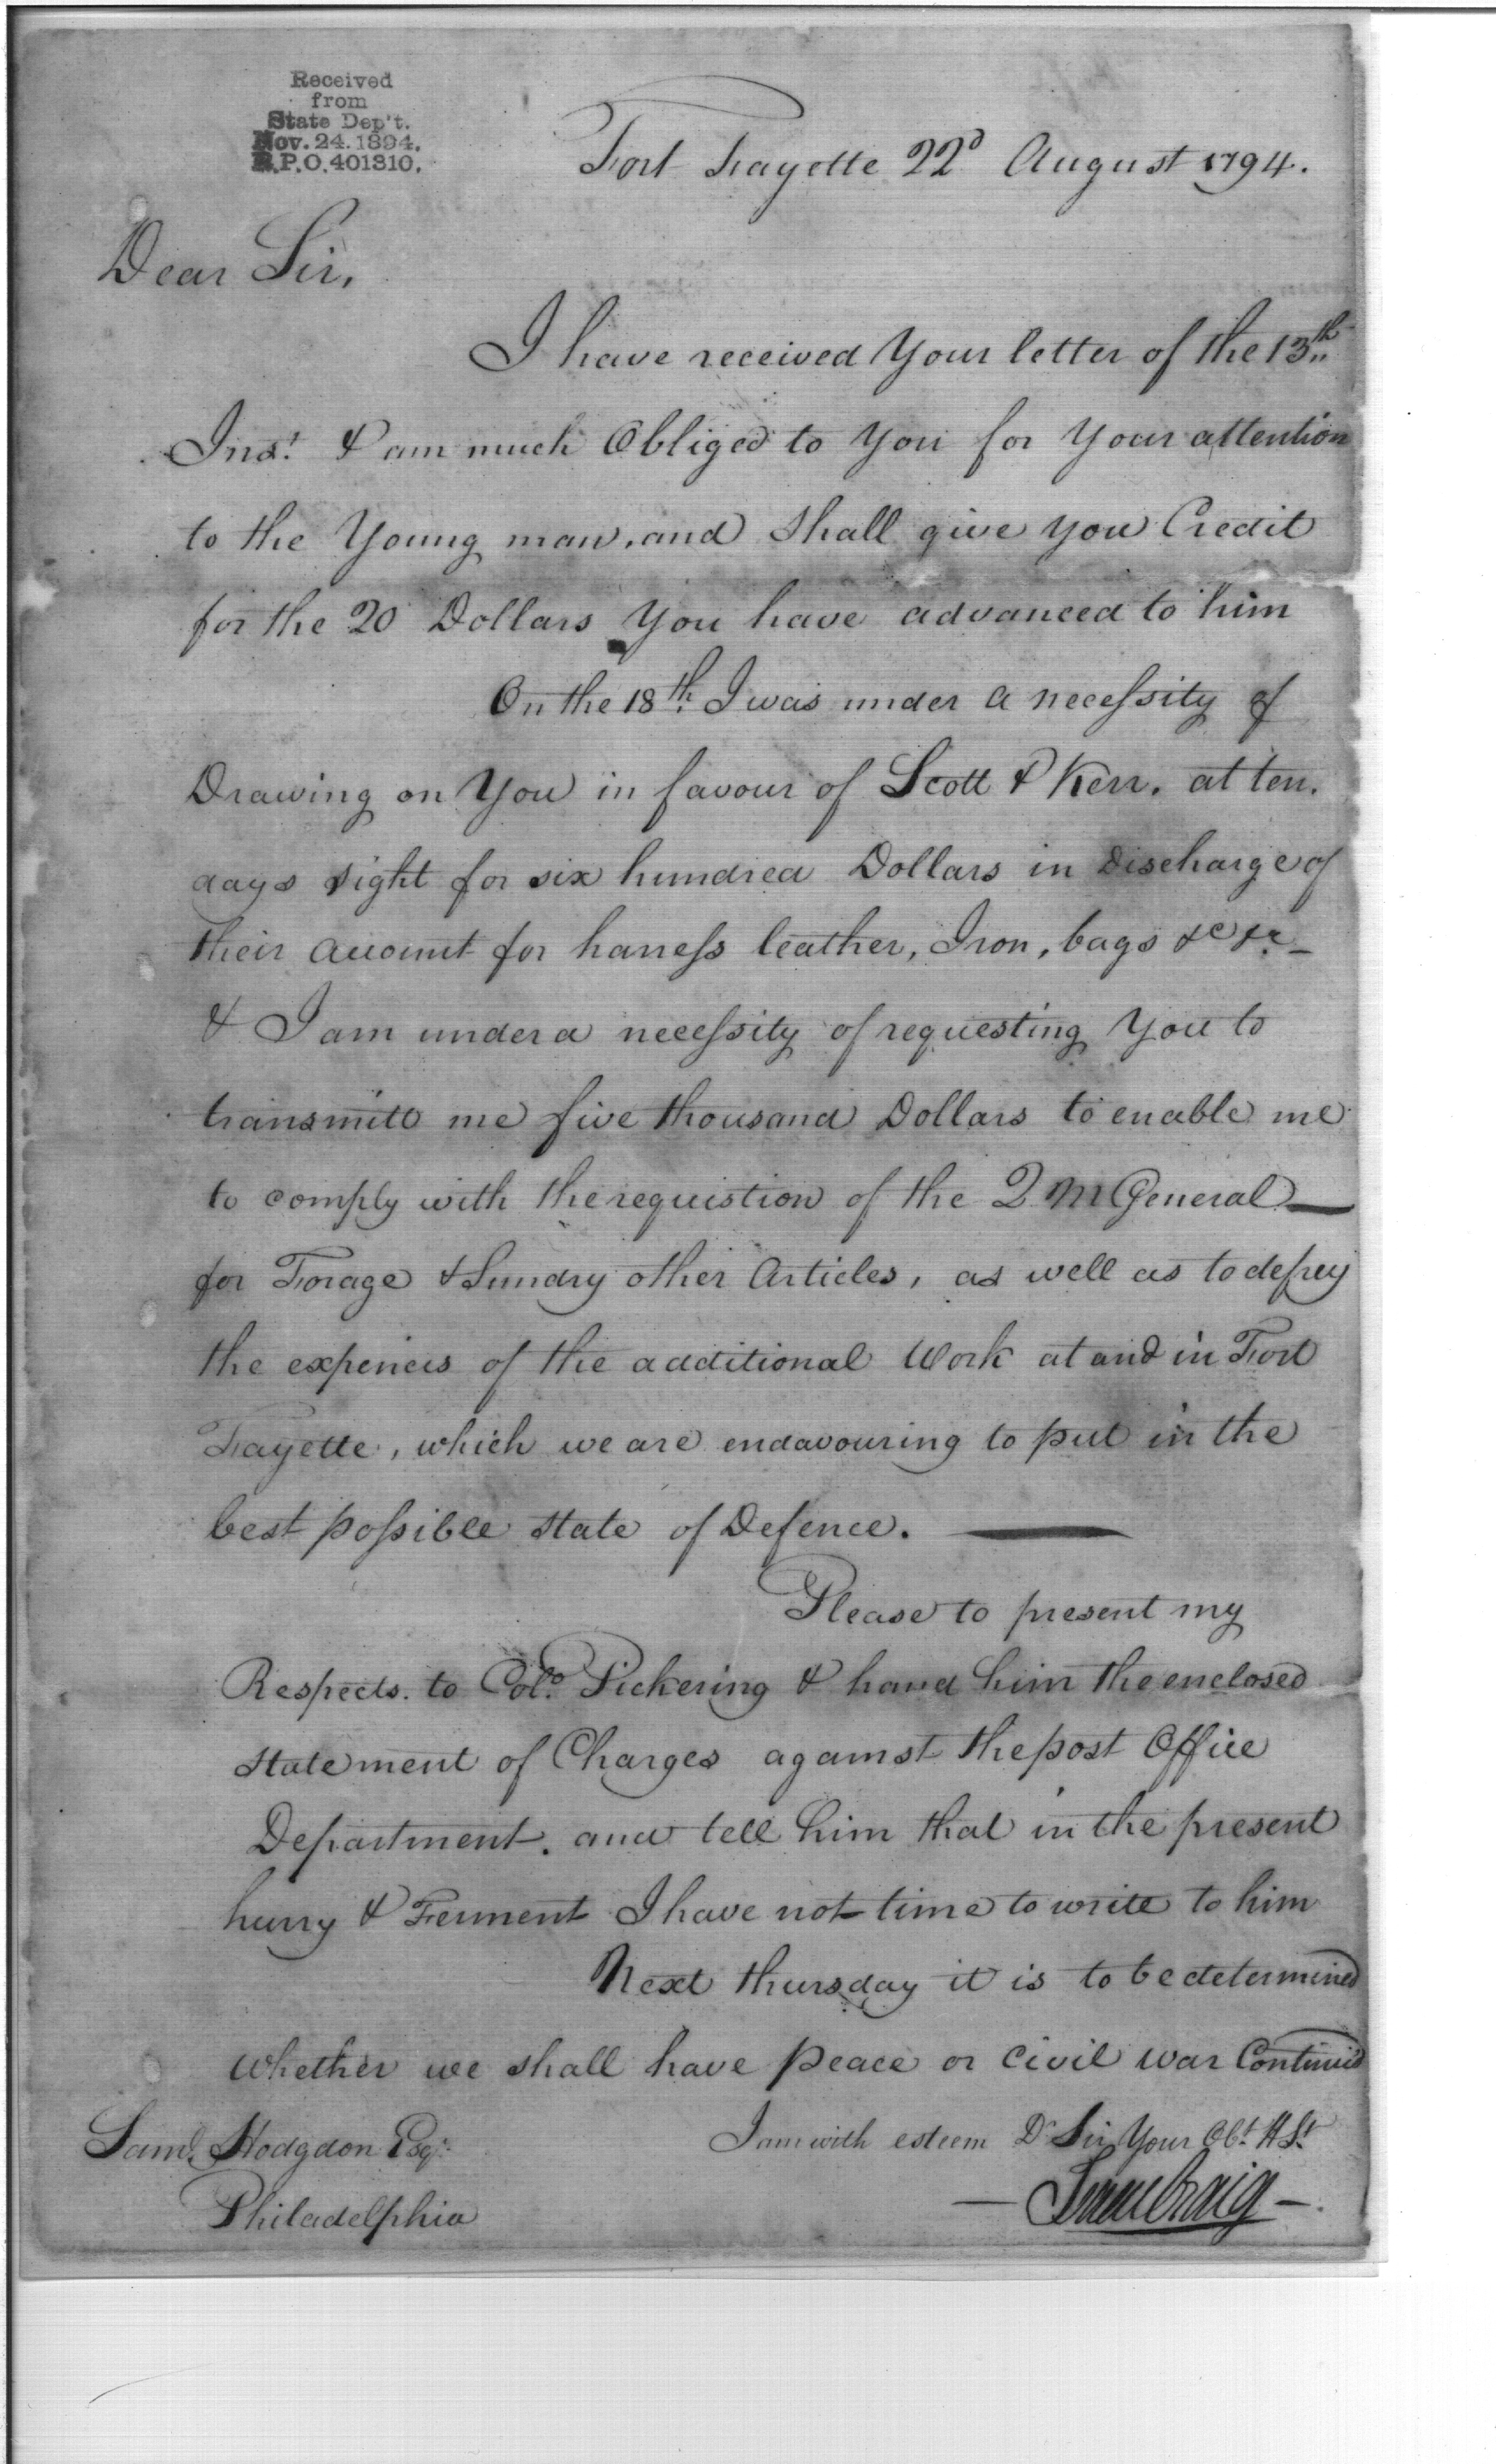 Received
from
State Dep't.
Nov. 24. 1894.
R.P.O. 401310.
Fort Fayette 22d August 1794.
Dear Sir,
I have received Your letter of the 13th
Inst. & am much Obliged to You for Your attention
to the Young man, and shall give You Credit
for the 20 Dollars You have advanced to him
On the 18th. I was under a necessity of
Drawing on You in favour of Scott & Kerr. at ten.
days sight for six hundred Dollars in Discharge of
their account for harness leather, Iron, bags &c &c. –
& I am under a necessity of requesting You to
transmitt me five thousand Dollars to enable me
to comply with the requistion of the Q M General —
for Forage & Sundry other Articles, as well as to defrey
the expences of the additional Work at and in Fort
Fayette, which we are endavouring to put in the
best possible state of Defence. —
Please to present my
Respects. to Colo. Pickering & hand him the enclosed
statement of Charges against the post Office
Department. and tell him that in the present
hurry & Ferment I have not time to write to him
Next thursday it is to be determined
Whether we shall have peace or Civil war Continued
I am with esteem Dr Sir Your Obt. H St.
Saml. Hodgdon Esqr.
Philadelphia
— Isaac Craig —.